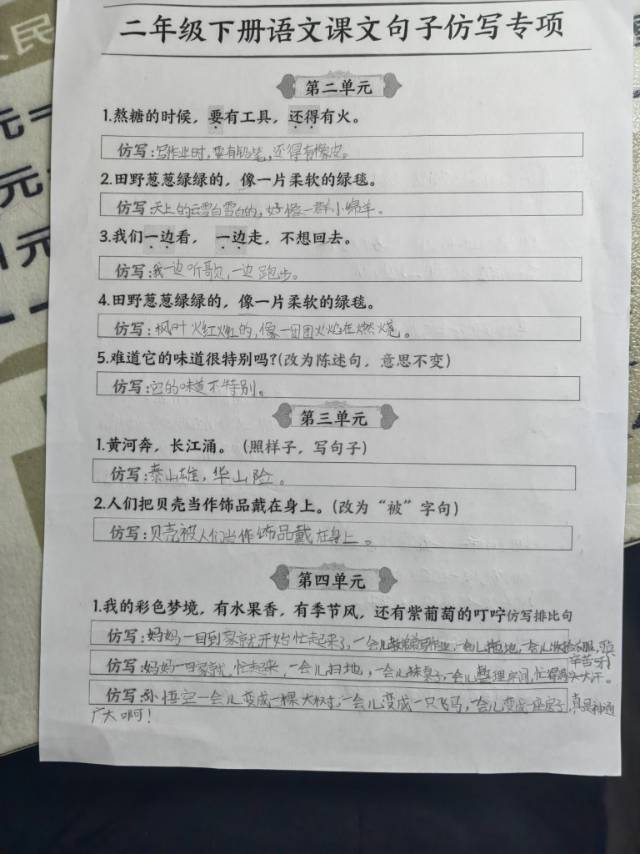 二年级下册语文课文句子仿写专项
第二单元
1.熬糖的时候，要有工具，还得有火。
仿写：写作业时，要有铅笔，还得有橡皮。
2.田野葱葱绿绿的，像一片柔软的绿毯。
仿写：天上的云雪白雪白的，好像一群小绵羊。
3.我们一边看， 一边走，不想回去。
仿写：我一边听歌，一边跑步。
4.田野葱葱绿绿的，像一片柔软的绿毯。
仿写：枫叶火红火红的，像一团团火焰在燃烧。
5.难道它的味道很特别吗?(改为陈述句，意思不变)
仿写：它的味道不特别。
第三单元
1.黄河奔，长江涌。（照样子，写句子）
仿写：泰山雄，华山险。
2.人们把贝壳当作饰品戴在身上。(改为“被”字句)
仿写：贝壳被人们当作饰品戴在身上。
第四单元
1.我的彩色梦境，有水果香，有季节风，还有紫葡萄的叮咛仿写排比句
仿写：妈妈一回到家就开始忙起来了，一会儿作业，一会儿拖地，一会儿衣服，真
辛苦呀！
仿写：妈妈一回家就忙起来，一会儿扫地，一会儿抹桌子，一会儿整理房间，忙得满
头大汗。
仿写：孙悟空一会儿变成一棵大树，一会儿变成一只飞鸟，一会儿变成一座房子，真是神通
广大啊！
元=
元
1元
民